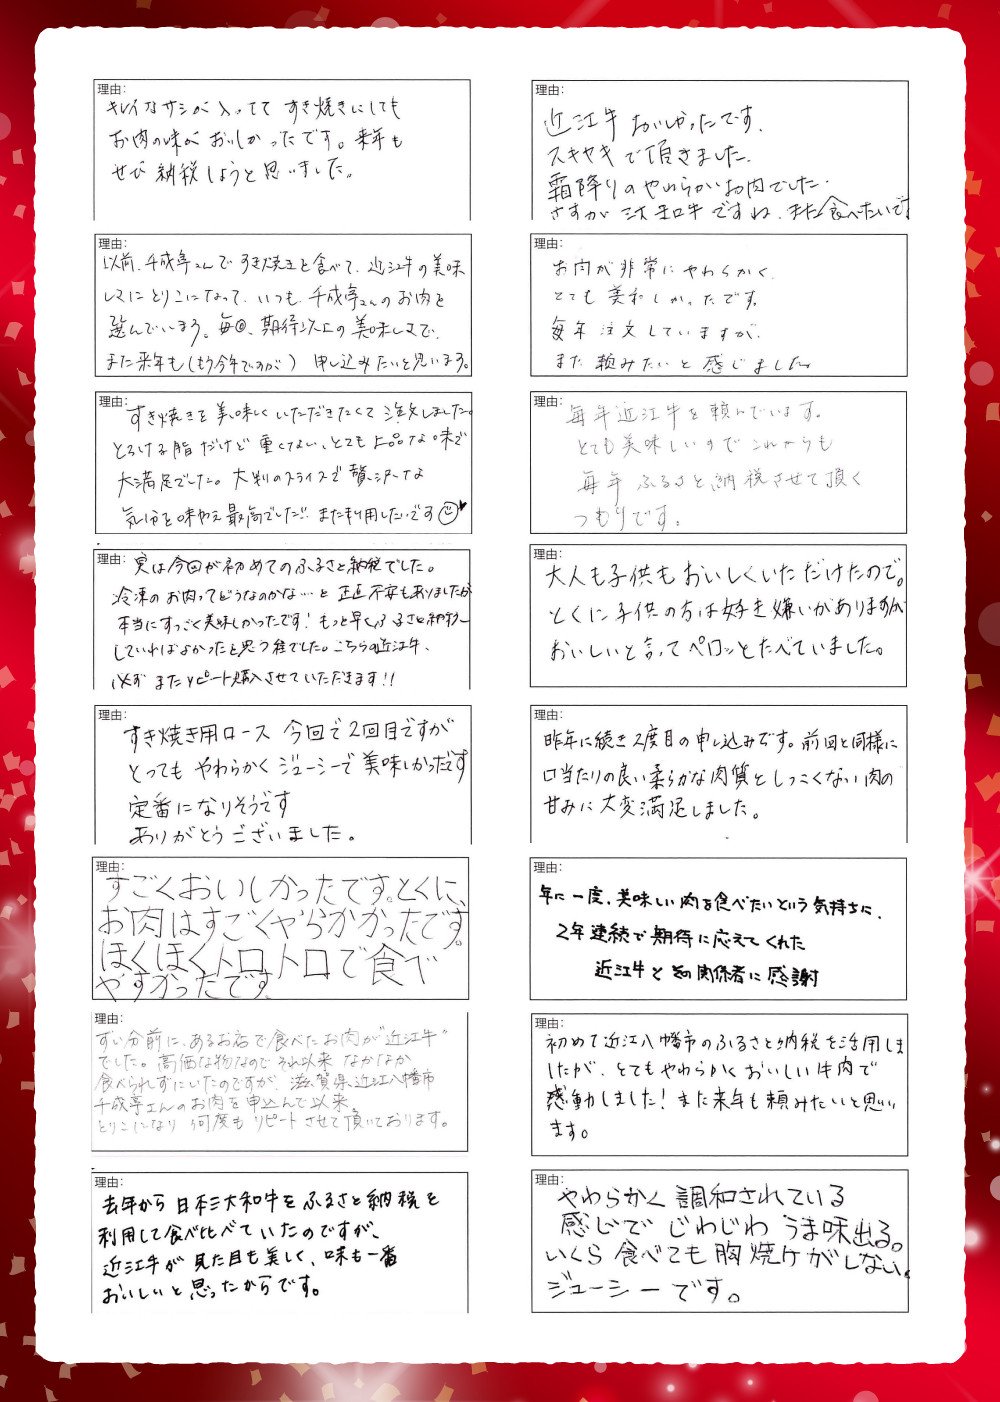 理由:
キレイなサシが入ってて すき焼きにしても
お肉の味が おいしかったです。来年も
ぜひ 納税しようと思いました。
理由:
近江牛 おいしかったです。
スキヤキで頂きました。
霜降りのやわらかいお肉でした。
さすが 三大和牛ですね。また食べたいです
理由:
以前、千成亭さんで すき焼きを食べて、近江牛の美味
しさにとりこになって、いつも 千成亭さんのお肉を
選んでいます。毎回、期待以上の美味しさで、
また来年も(もう今年ですが) 申し込みたいと思います。
理由:
お肉が非常にやわらかく、
とても美味しかったです。
毎年注文していますが、
また頼みたいと感じました。
理由:
すき焼きを美味しくいただきたくて注文しました。
とろける脂だけど重くない、とても上品な味で
大満足でした。大判のスライスで贅沢な
気分を味わえ最高でした!! また利用したいです
理由:
毎年近江牛を頼んでいます。
とても美味しいのでこれからも
毎年ふるさと納税させて頂く
つもりです。
理由:
実は今回が初めてのふるさと納税でした。
冷凍のお肉ってどうなのかな…と正直不安もありましたが
本当にすっごく美味しかったです!もっと早くふるさと納税
していればよかったと思う程でした。こちらの近江牛、
必ず またリピート購入させていただきます!!
理由:
大人も子供もおいしくいただけたので。
とくに子供の方は好き嫌いがありますが
おいしいと言ってペロッとたべていました。
理由:
すき焼き用ロース 今回で2回目ですが
とっても やわらかく ジューシーで美味しかったです
定番になりそうです
ありがとうございました。
理由:
昨年に続き2度目の申し込みです。前回と同様に
口当たりの良い柔らかな肉質としつこくない肉の
甘みに大変満足しました。
理由:
すごくおいしかったです。とくに、
お肉はすごくやらかかったです。
ほくほくトロトロで食べ
やすかったです。
理由:
年に一度、美味しい肉を食べたいという気持ちに、
2年連続で期待に応えてくれた
近江牛とその関係者に感謝
理由:
ずい分前に、あるお店で食べたお肉が“近江牛”
でした。高価な物なので それ以来 なかなか
食べられずにいたのですが、滋賀県近江八幡市
千成亭さんのお肉を申込んで以来
とりこになり 何度もリピートさせて頂いております。
理由:
初めて近江八幡市のふるさと納税を活用しま
したが、とてもやわらかくおいしい牛肉で
感動しました!また来年も頼みたいと思い
ます。
理由:
去年から 日本三大和牛を ふるさと納税を
利用して食べ比べていたのですが、
近江牛が見た目も美しく、味も一番
おいしいと思ったからです。
理由:
やわらかく調和されている
感じで じわじわ うま味出る。
いくら食べても胸焼けがしない。
ジューシーです。